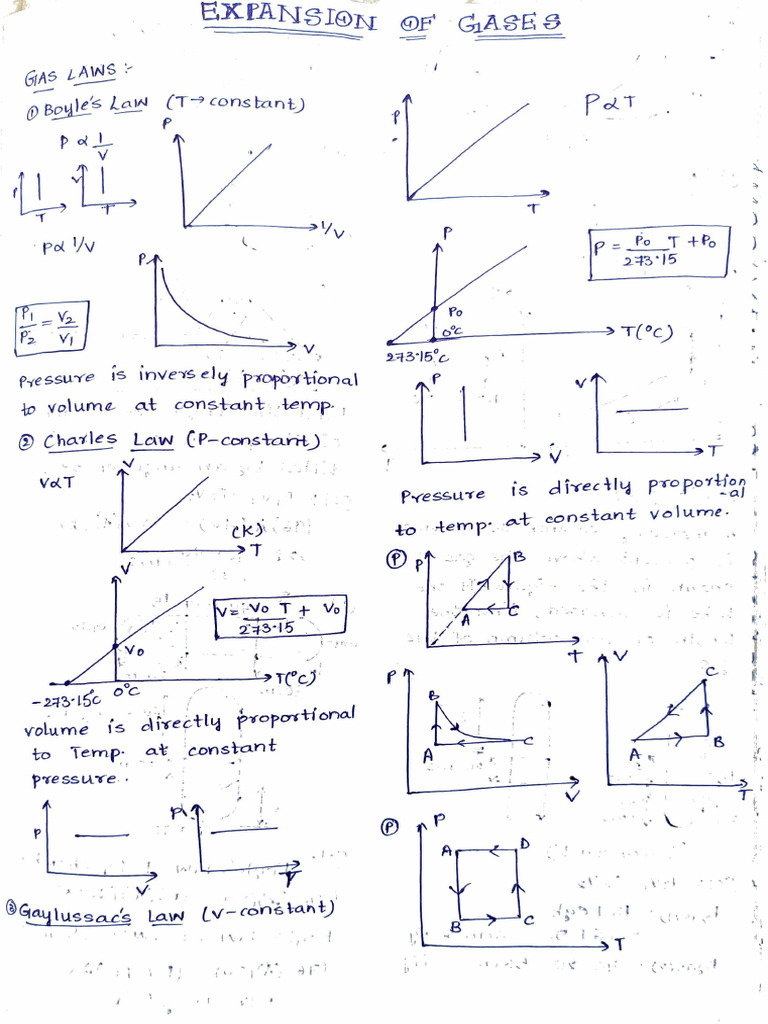 EXPANSION OF GASES
GAS LAWS :-
① Boyle's Law (T→constant)
P ∝ 1/V
P
T
V
T
P
1/V
P∝ 1/V
P
V
P1/P2 = V2/V1
Pressure is inversely proportional
to volume at constant temp.
② Charles Law (P-constant)
V∝T
V
(K)
T
V
V0
-273.15°C
0°C
T(°C)
V = V0 T/273.15 + V0
Volume is directly proportional
to Temp. at constant
pressure.
P
V
P
T
③ Gaylussac's Law (V-constant)
P
T
P∝T
P
P0
0°C
273.15°C
T(°C)
P = P0 T/273.15 + P0
P
V
V
T
Pressure is directly proportion
-al
to temp. at constant volume.
Ⓟ
P
A
B
C
T
P
B
A
C
V
V
C
A
B
T
Ⓟ
P
A
D
B
C
T